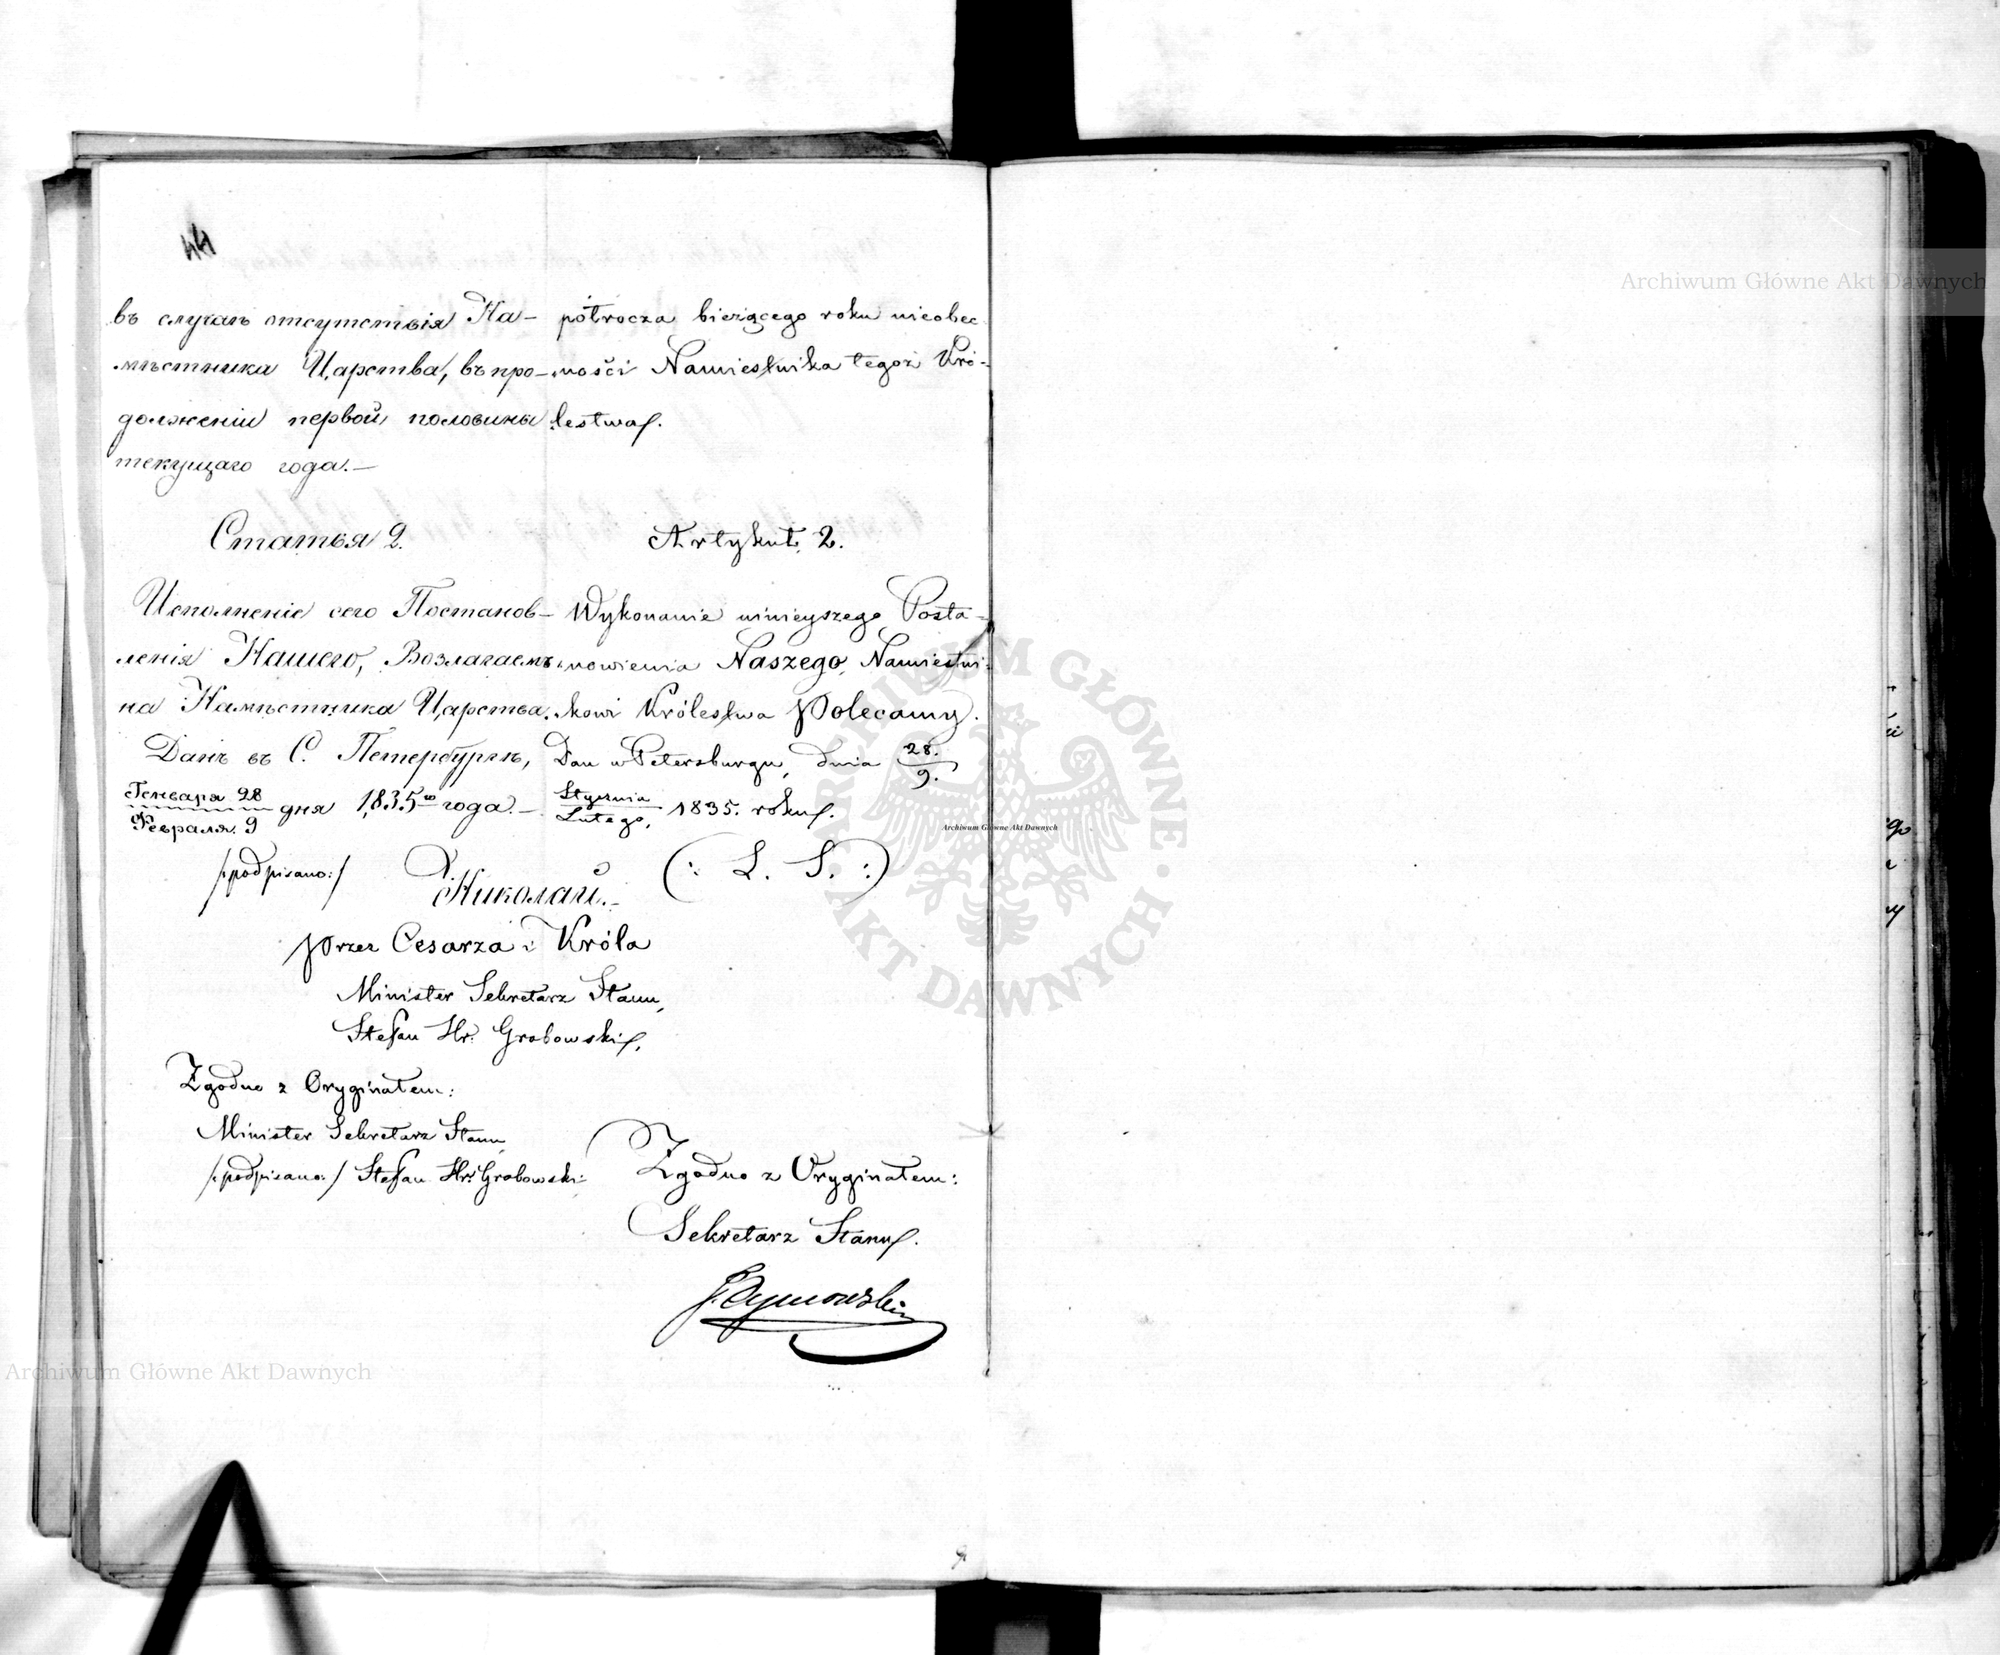 44
въ случаѣ отсутствія На-
мѣстника Царства, въ про-
долженіи первой половины
текущаго года.—
Статья 2.
Исполненіе сего Постанов-
ленія Нашего, Возлагаемъ
на Намѣстника Царства.
Данъ въ С. Петербургѣ,
Генваря 28
Февраля 9 дня 1835го года.—
półrocza bieżącego roku nieobec
ności Namiestnika tegoż Kró-
lestwa.
Artykuł 2.
Wykonanie ninieyszego Posta-
nowienia Naszego, Namiestni-
kowi Królestwa Polecamy.
Dan w Petersburgu, dnia 28./9.
Stycznia
Lutego, 1835. roku.
/:podpisano:/ Николай.
(: L. S. :)
przez Cesarza i Króla
Minister Sekretarz Stanu,
Stefan Hr. Grabowski.
Zgodno z Oryginałem:
Minister Sekretarz Stanu
/:podpisano:/ Stefan Hr. Grabowski
Zgodno z Oryginałem:
Sekretarz Stanu.
J. Tymowski
Archiwum Główne Akt Dawnych
Archiwum Główne Akt Dawnych
Archiwum Główne Akt Dawnych
ARCHIWUM GŁÓWNE AKT DAWNYCH